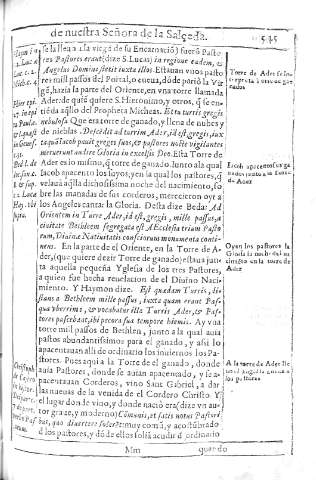 de nuestra Señora de la Salçeda.
545
se llega a la virgẽ de su Encarnaciõ) fuerõ Pasto
res Pastores erant (dize S. Lucas) in regione eadem, &
Angelus Domini stetit iuxta illos. Estauan vnos pasto
res mil passos del Portal, o cueua, donde pariò la Vir
gẽ, hazia la parte del Oriente, en vna torre llamada
Ader: de quiẽ quiere S. Hieronimo, y otros, q̃ se en-
tiẽda aq̃llo del Propheta Micheas. Et tu turris gregis
nebulosa Que era torre de ganado, y llena de nubes y
de nieblas. Descẽdit ad turrim Ader, id est gregis, iux
ta quã Iacob pauit greges suos, & pastores nocte vigilantes
meruerunt audire Gloria in excelsis Deo. Esta Torre de
Ader es lo mismo, q̃ torre de ganado. Iunto a la qual
Iacob apacento los suyos, y en la qual los pastores, q̃
velauã aq̃lla dichosissima noche del nacimiento, so
bre las manadas de sus corderos, merecieron oyr a
los Angeles cantar la Gloria. Desta dize Beda: Ad
Orientem in Torre Ader, id est, gregis, mille passus, a
ciuitate Bethleem segregata est Ecclesia trium Pasto
rum, Diuinæ Natiuitatis consciorum monumenta conti-
nens. En la parte de el Oriente, en la Torre de A-
der, (que quiere dezir Torre de ganado) estaua jun
ta aquella pequeña Yglesia de los tres Pastores,
a quien fue hecha reuelacion de el Diuino Naci-
miento. Y Haymon dize. Est quædam Turris, dis
stans a Bethleem mille passus, iuxta quam erant Pas-
qua vberrima, & vocabatur illa Turris Ader, &
Pastores pascebant, ibi pecora sua tempore hiemis. Ay vna
torre mil passos de Bethlen, junto a la qual auia
pastos abundantissimos para el ganado, y assi lo
apacentauan alli de ordinario los inuiernos los Pa-
stores. Pues aquia la Torre de el ganado, donde
auia Pastores, donde se auian apacentado, y se a-
pacentauan Corderos, vino Sant Gabriel, a dar
las nueuas de la venida de el Cordero Christo. Y
el lugar donde vino, y donde naciò era (dize vn au-
tor graue, y moderno) Cõmunis, et satis notus Pastori
bus, quo diuertere solerẽt: muy comũ, y acostũbrado
a los pastores, y dõde ellos soliã acudir d ordinario
Mm
quando
Torre de Ader
Iacob apacentò
junto a la torre
de Ader
Oyen los pastores la
Gloria la noche del na
cimiento en la torre de
Ader
A la torre de Ader
los pastores